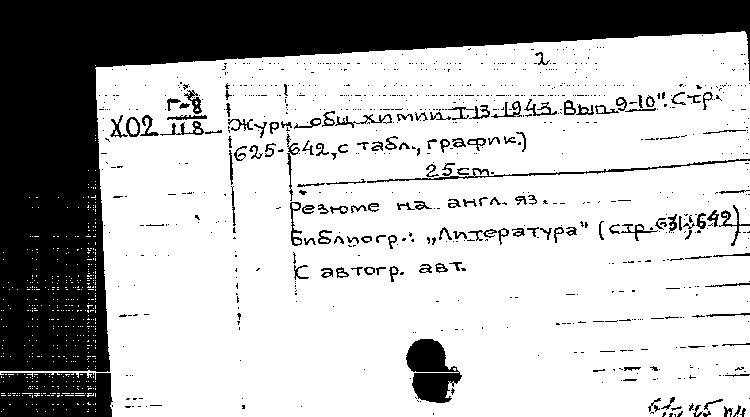 2
Г-8
Х02 118
Журн. общ. химии. Т.13. 1943. Вып. 9-10". Стр.
625-642, с табл., график.)
25 cm.
Резюме на англ. яз.
Библиогр.: „Литература" (стр. 631; 642)
С автогр. авт.